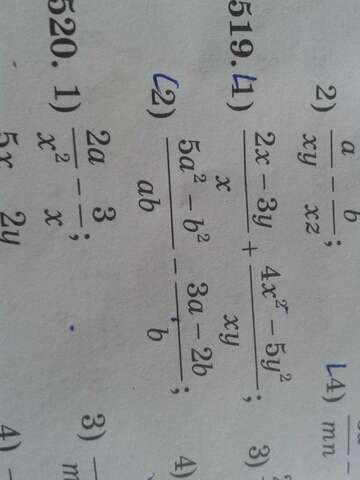 2) a/xy - b/xz; 4) /mn -
519. 1) (2x - 3y)/x + (4x² - 5y²)/xy; 3)
2) (5a² - b²)/ab - (3a - 2b)/b; 4)
520. 1) 2a/x² - 3/x; 3)
5x 2y 4)